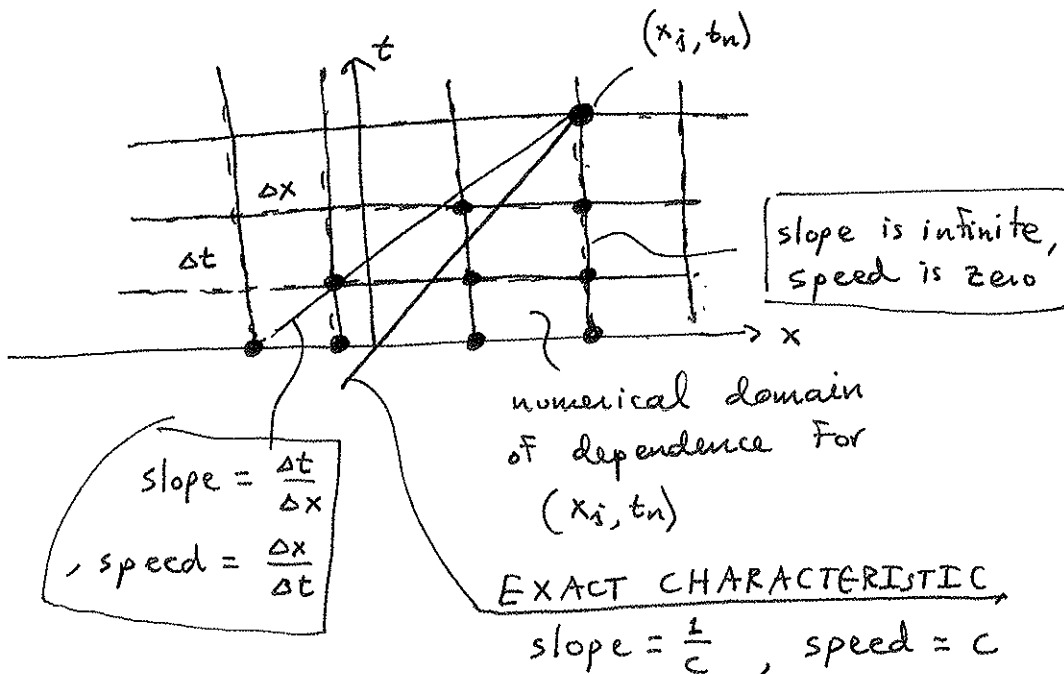 (x_j, t_n)
t
Δx
Δt
slope is infinite,
speed is zero
x
numerical domain
of dependence for
(x_j, t_n)
slope = Δt/Δx
, speed = Δx/Δt
EXACT CHARACTERISTIC,
slope = 1/c , speed = c